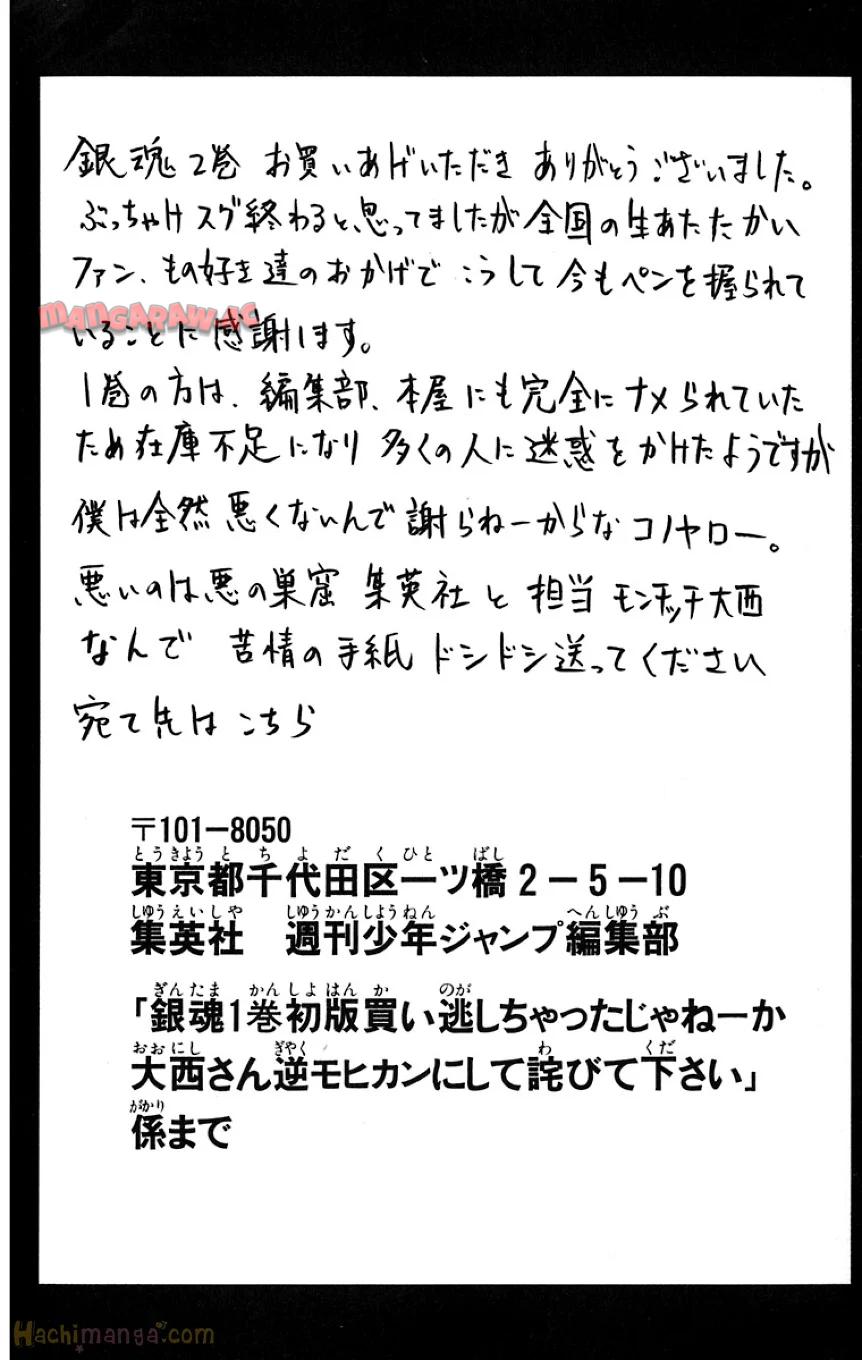 銀魂2巻 お買いあげいただき ありがとうございました。
ぶっちゃけスグ終わると思ってましたが全国の生あたたかい
ファン、もの好き達のおかげで こうして今もペンを握られて
MANGARAW.AC
いることに感謝します。
1巻の方は、編集部、本屋にも完全にナメられていた
ため在庫不足になり 多くの人に迷惑をかけたようですが
僕は全然悪くないんで謝らねーからなコノヤロー。
悪いのは悪の巣窟 集英社と担当モンチッチ大西
なんで 苦情の手紙ドシドシ送ってください
宛て先はこちら
〒101-8050
とうきょうとちよだくひとばし
東京都千代田区一ツ橋2-5-10
しゅうえいしゃ しゅうかんしょうねん へんしゅうぶ
集英社 週刊少年ジャンプ編集部
ぎんたま かんしょはんか のが
「銀魂1巻初版買い逃しちゃったじゃねーか
おおにし ぎゃく わ くだ
大西さん逆モヒカンにして詫びて下さい」
がかり
係まで
Hachimanga.com